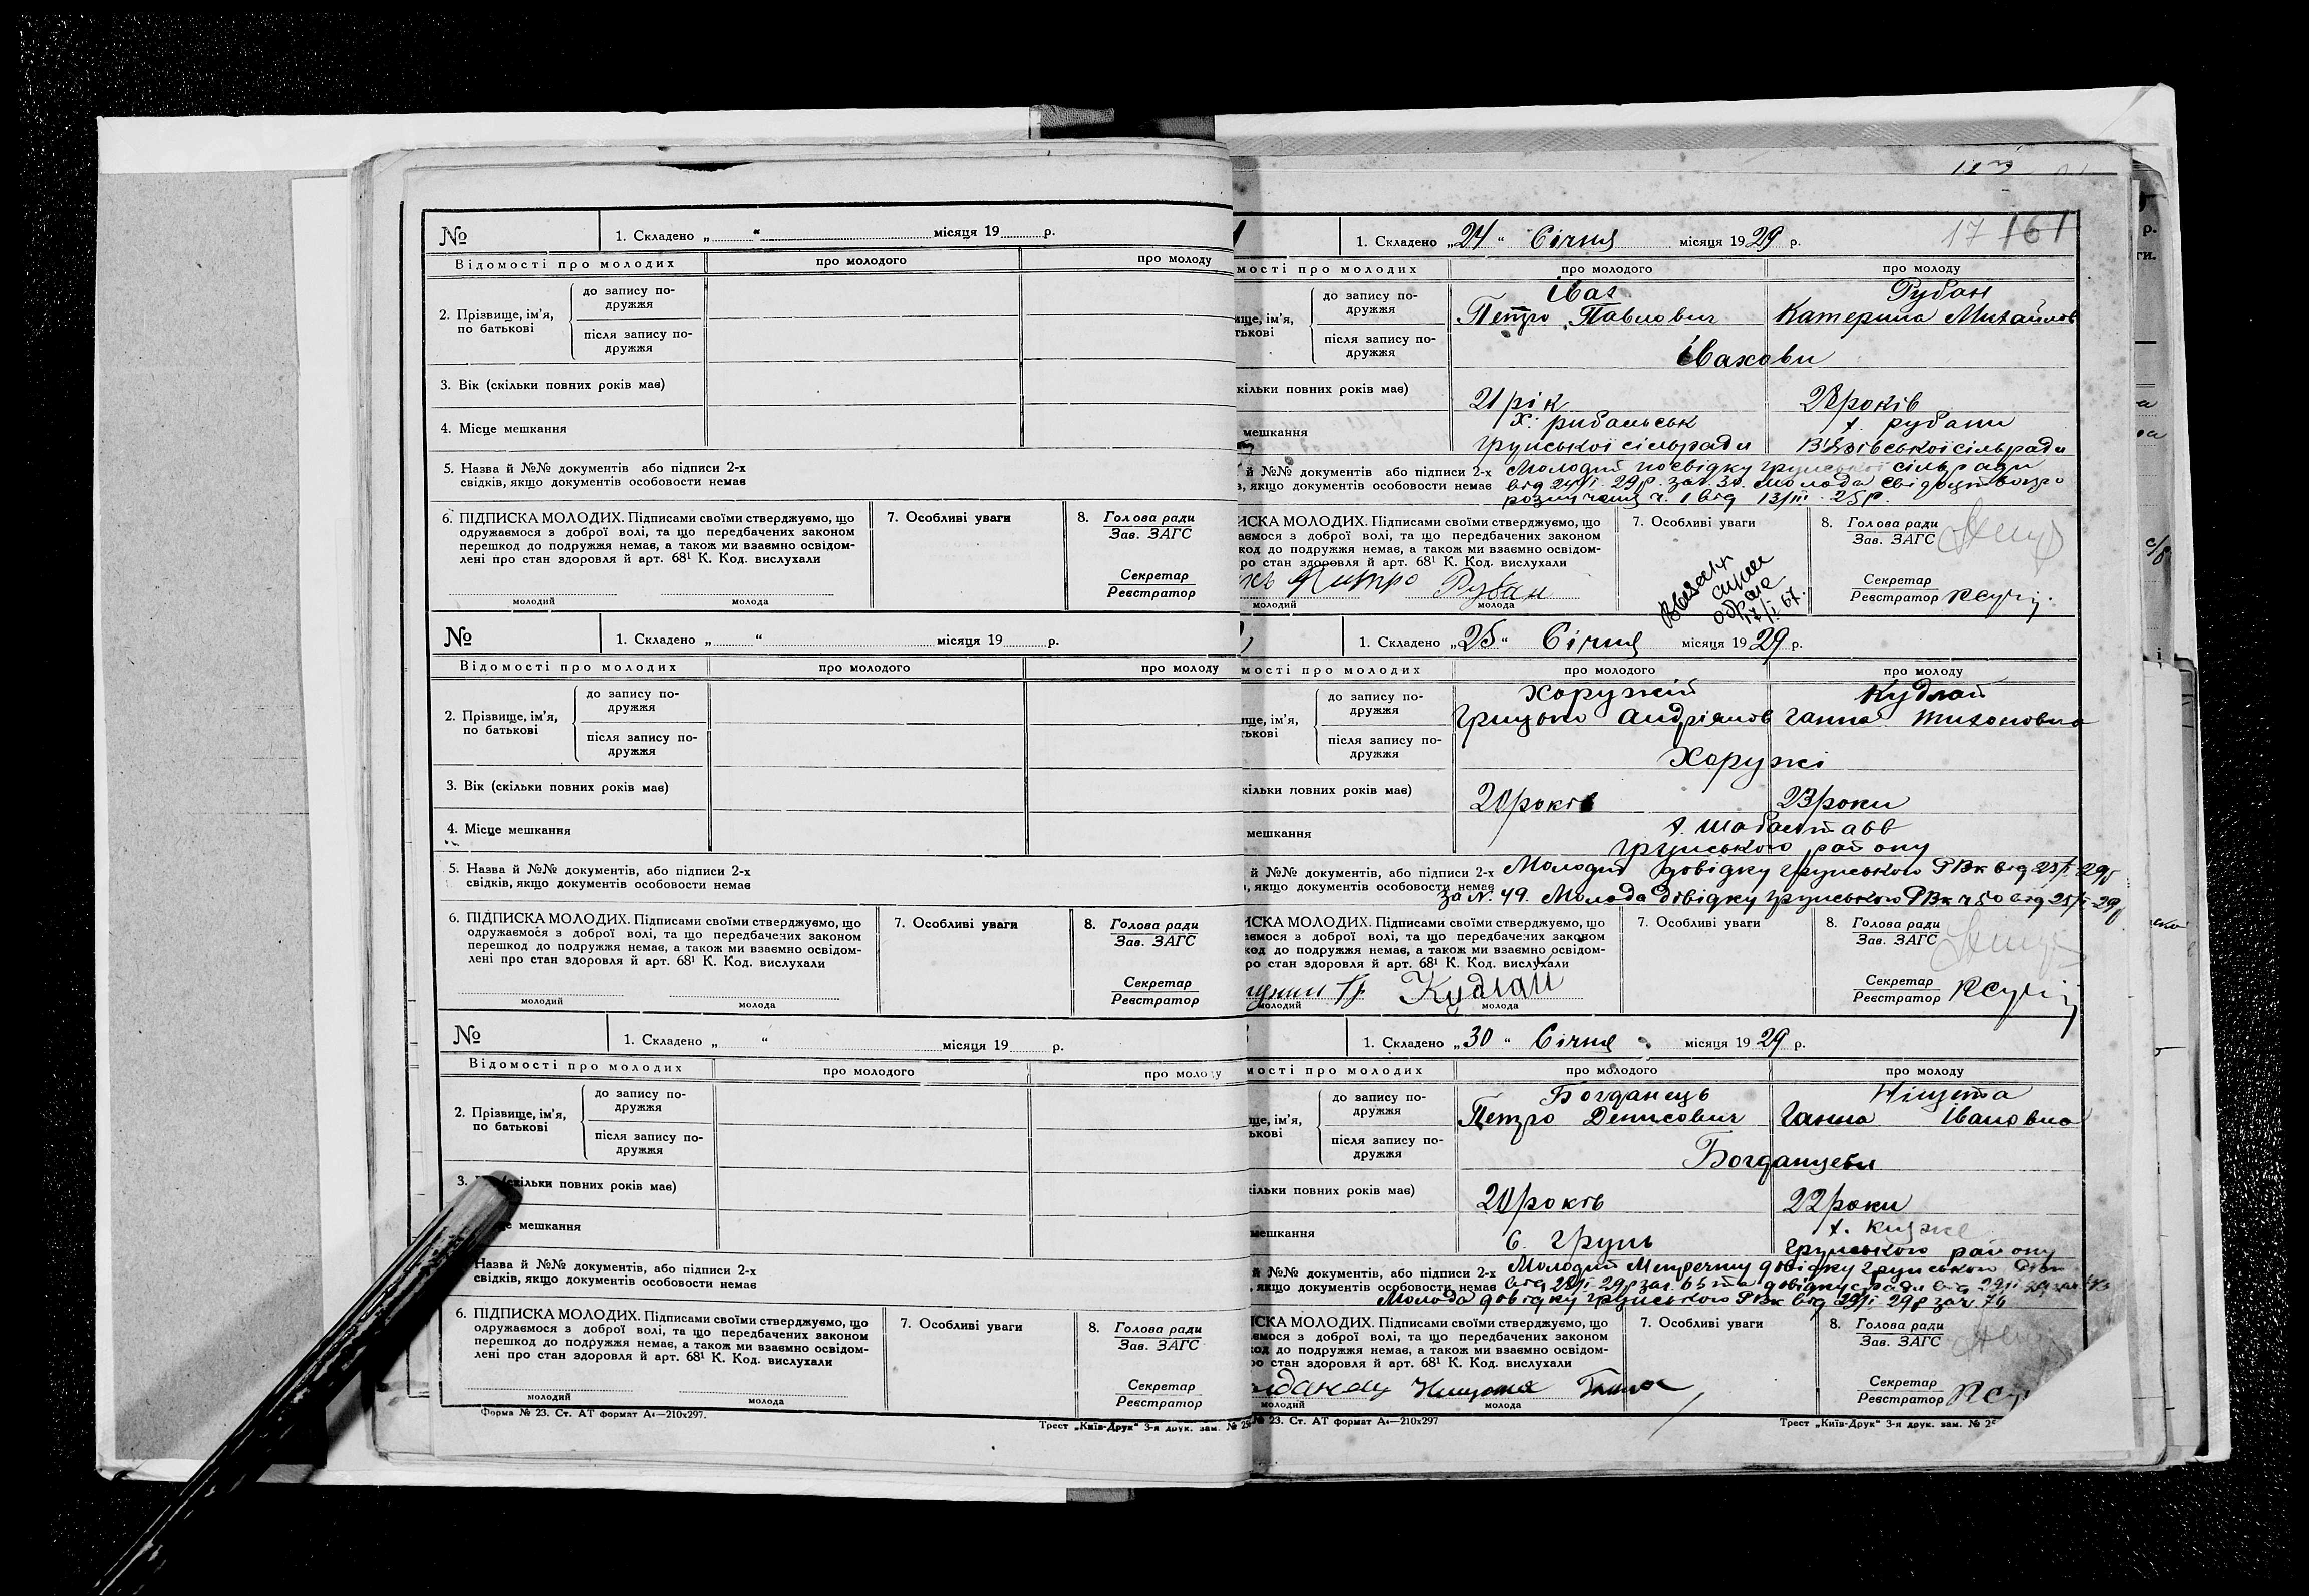 №
1. Складено „ “ місяця 19 р.
Відомості про молодих
про молодого
про молоду
2. Прізвище, ім’я,
по батькові
до запису по-
дружжя
після запису по-
дружжя
3. Вік (скільки повних років має)
4. Місце мешкання
5. Назва й №№ документів або підписи 2-х
свідків, якщо документів особовости немає
6. ПІДПИСКА МОЛОДИХ. Підписами своїми стверджуємо, що
одружаємося з доброї волі, та що передбачених законом
перешкод до подружжя немає, а також ми взаємно освідом-
лені про стан здоровля й арт. 68¹ К. Код. вислухали
молодий
молода
7. Особливі уваги
8. Голова ради
Зав. ЗАГС
Секретар
Реєстратор
№
1. Складено „ “ місяця 19 р.
Відомості про молодих
про молодого
про молоду
2. Прізвище, ім’я,
по батькові
до запису по-
дружжя
після запису по-
дружжя
3. Вік (скільки повних років має)
4. Місце мешкання
5. Назва й №№ документів, або підписи 2-х
свідків, якщо документів особовости немає
6. ПІДПИСКА МОЛОДИХ. Підписами своїми стверджуємо, що
одружаємося з доброї волі, та що передбачених законом
перешкод до подружжя немає, а також ми взаємно освідом-
лені про стан здоровля й арт. 68¹ К. Код. вислухали
молодий
молода
7. Особливі уваги
8. Голова ради
Зав. ЗАГС
Секретар
Реєстратор
№
1. Складено „ “ місяця 19 р.
Відомості про молодих
про молодого
про молоду
2. Прізвище, ім’я,
по батькові
до запису по-
дружжя
після запису по-
дружжя
3. (скільки повних років має)
мешкання
Назва й №№ документів, або підписи 2-х
свідків, якщо документів особовости немає
6. ПІДПИСКА МОЛОДИХ. Підписами своїми стверджуємо, що
одружаємося з доброї волі, та що передбачених законом
перешкод до подружжя немає, а також ми взаємно освідом-
лені про стан здоровля й арт. 68¹ К. Код. вислухали
молодий
молода
7. Особливі уваги
8. Голова ради
Зав. ЗАГС
Секретар
Реєстратор
Форма № 23. Ст. АТ формат А₄—210х297.
Трест „Київ-Друк“ 3-я друк. зам. №
1. Складено „24“ Січня місяця 1929 р.
17 161
про молодих
про молодого
про молоду
до запису по-
дружжя
Івах
Рубан
Петро Павлович
Катерина Михайлов
після запису по-
дружжя
Івахови
повних років має)
21 рік
28 років
мешкання
х. рибальськ
х. рубани
грунської сільради
сільради
й №№ документів або підписи 2-х
якщо документів особовости немає
Молодий посвідку грунської сільради
від 24/І 29р. за
розлучення ч. 1 від 13/ІІІ 25р.
МОЛОДИХ. Підписами своїми стверджуємо, що
з доброї волі, та що передбачених законом
до подружжя немає, а також ми взаємно освідом-
стан здоровля й арт. 68¹ К. Код. вислухали
Рубан
молодий
молода
7. Особливі уваги
17/І 67.
8. Голова ради
Зав. ЗАГС
Секретар
Реєстратор
1. Складено „25“ Січня місяця 1929 р.
про молодих
про молодого
про молоду
до запису по-
дружжя
Хоружій
Кудлай
Грицько Андріянов
Ганна Тихоновна
після запису по-
дружжя
Хоружі
повних років має)
20 років
23 роки
мешкання
грунського району
й №№ документів, або підписи 2-х
якщо документів особовости немає
Молодий довідку грунського РВк від 25/І 29р
за N. 49. Молода довідку грунського РВк ч 50 від 25/І 29р
МОЛОДИХ. Підписами своїми стверджуємо, що
з доброї волі, та що передбачених законом
до подружжя немає, а також ми взаємно освідом-
стан здоровля й арт. 68¹ К. Код. вислухали
Кудлай
молодий
молода
7. Особливі уваги
8. Голова ради
Зав. ЗАГС
Секретар
Реєстратор
1. Складено „30“ Січня місяця 1929 р.
про молодих
про молодого
про молоду
до запису по-
дружжя
Богданець
Ніщета
Петро Денисович
Ганна Івановна
після запису по-
дружжя
Богданцеви
повних років має)
20 років
22 роки
мешкання
с. Грунь
грунського району
й №№ документів, або підписи 2-х
якщо документів особовости немає
Молодий Метричну довідку грунською
Молода довідку грунського РВк від 29/І 29р за ч 76
МОЛОДИХ. Підписами своїми стверджуємо, що
з доброї волі, та що передбачених законом
до подружжя немає, а також ми взаємно освідом-
стан здоровля й арт. 68¹ К. Код. вислухали
молодий
молода
7. Особливі уваги
8. Голова ради
Зав. ЗАГС
Секретар
Реєстратор
№ 23. Ст. АТ формат А₄—210х297
Трест „Київ-Друк“ 3-я друк. зам. №